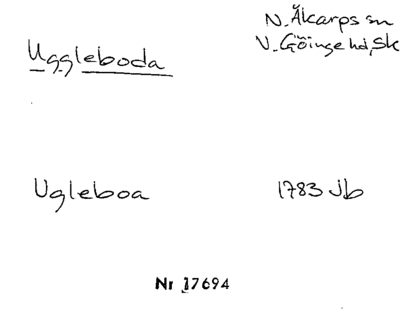 N. Åkarps sn
Uggleboda
V. Göinge hd, Sk
Ugleboa 1783 Jb
Nr 17694